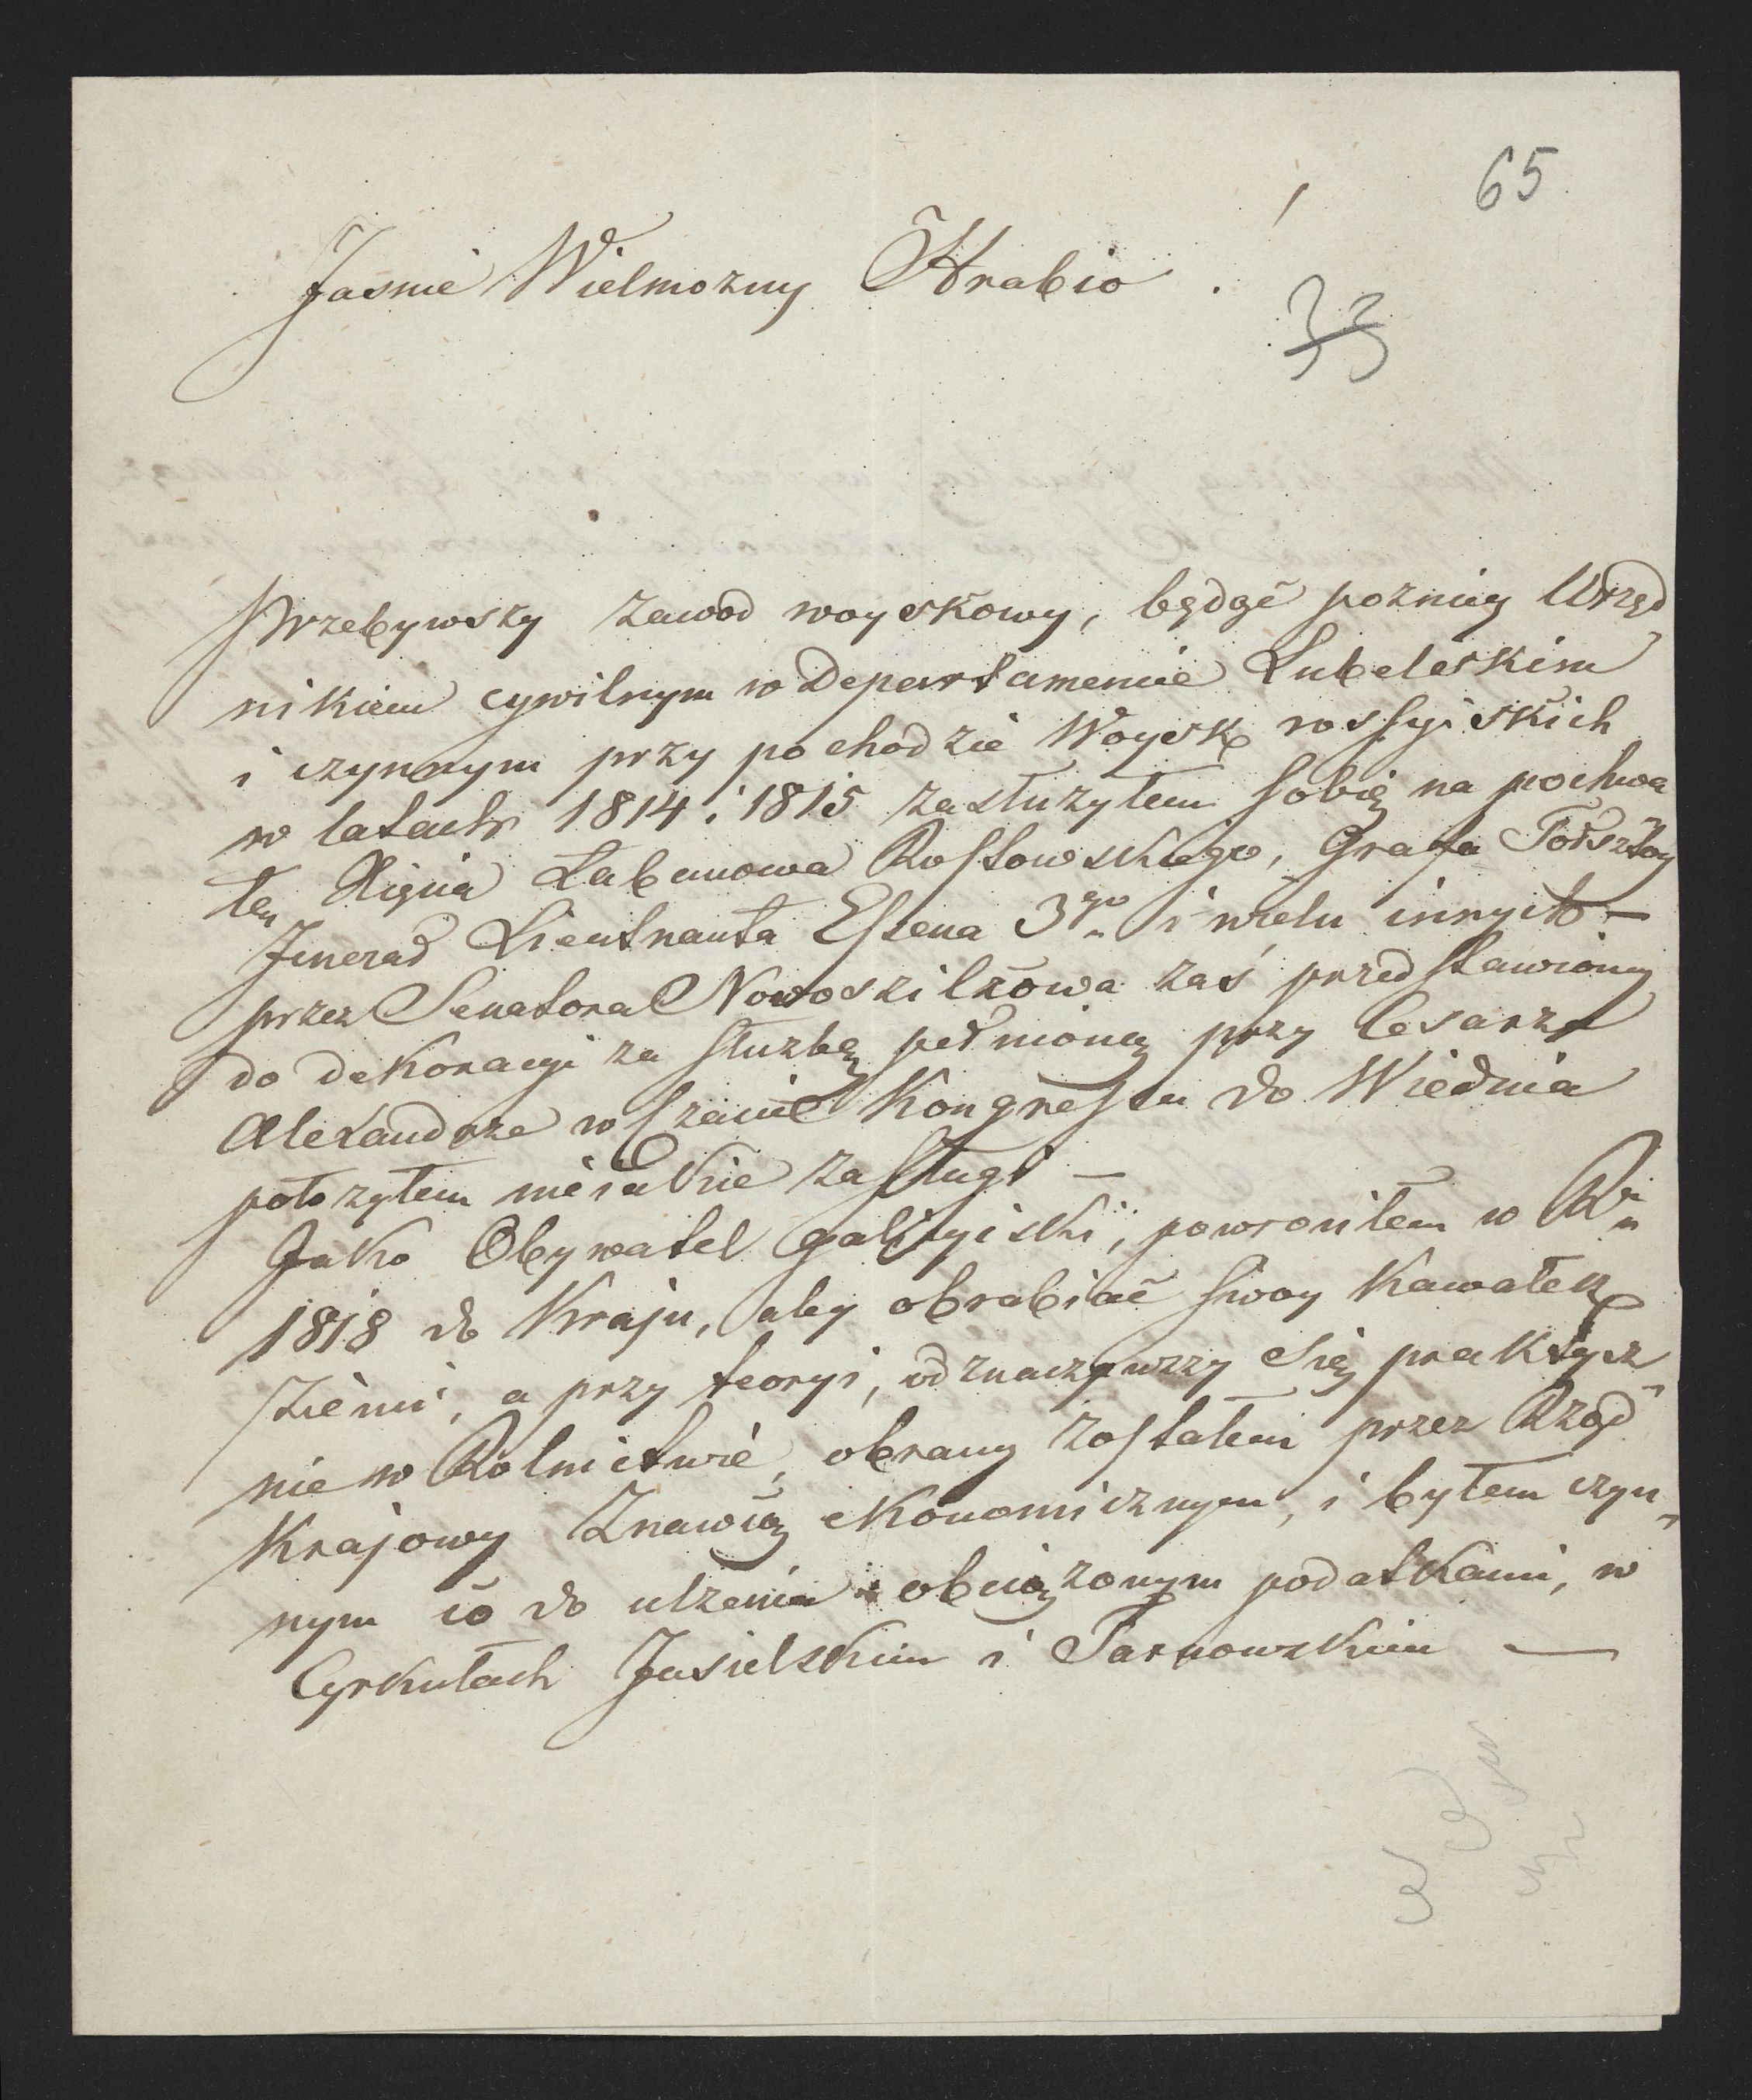 65
Jaśnie Wielmożny Hrabio !
33
Przebywszy zawod woyskowy, będąć pożniey Urzęd
nikiem cywilnym w Departamencie Lubelskim
i czynnym przy pochodzie Woysk rossyiskich
w latach 1814 i 1815 zasłużyłem sobie na pochwa
łę Xięcia Łabanowa Rostowskiego, Grafa Tołsztoy
Jenerał Lieutnanta Essena 3go i wielu innych —
przez Senatora Nowosilzowa zaś przedstawiony
do dekoracyi za służbę pełnioną przy Cesarzu
Alexandrze w czasie Kongressu do Wiednia
położyłem niejakie zasługi —
Jako Obywatel galicyiski, powrociłem w Rn
1818 do Kraju, aby obrabiać swoy Kawałek
Ziemi, a przy teoryi, odznaczywszy się praktycz
nie w Rolnictwie, obrany zostałem przez Rząd
Krajowy Znawcą ekonomicznym, i byłem czyn
nym co do ulżenia obciążonym podatkami, w
Cyrkułach Jasielskim i Tarnowskim —